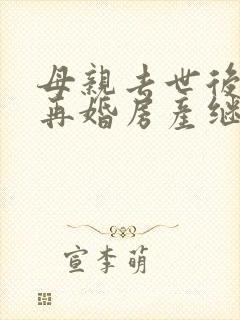 母親去世後
再婚房產继
宣李萌